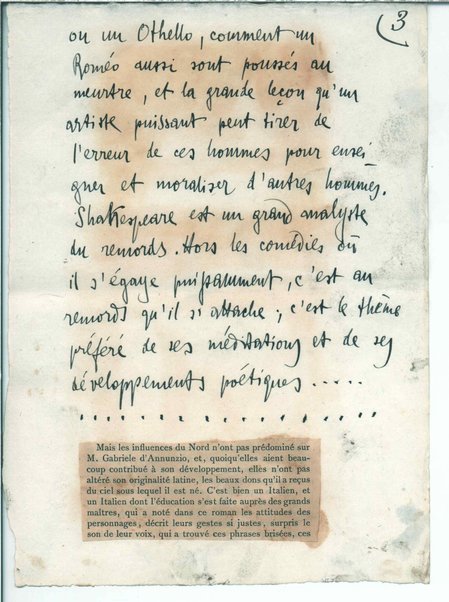 3
ou un Othello, comment un
Roméo aussi sont poussés au
meurtre, et la grande leçon qu'un
artiste puissant peut tirer de
l'erreur de ces hommes pour ensei
gner et moraliser d'autres hommes.
Shakespeare est un grand analyste
du remords. Hors les comédies où
il s'égaye puissamment, c'est au
remords qu'il s'attache ; c'est le thème
préféré de ses méditations et de ses
développements poétiques .....
Mais les influences du Nord n'ont pas prédominé sur
M. Gabriele d'Annunzio, et, quoiqu'elles aient beau-
coup contribué à son développement, elles n'ont pas
altéré son originalité latine, les beaux dons qu'il a reçus
du ciel sous lequel il est né. C'est bien un Italien, et
un Italien dont l'éducation s'est faite auprès des grands
maîtres, qui a noté dans ce roman les attitudes des
personnages, décrit leurs gestes si justes, surpris le
son de leur voix, qui a trouvé ces phrases brisées, ces